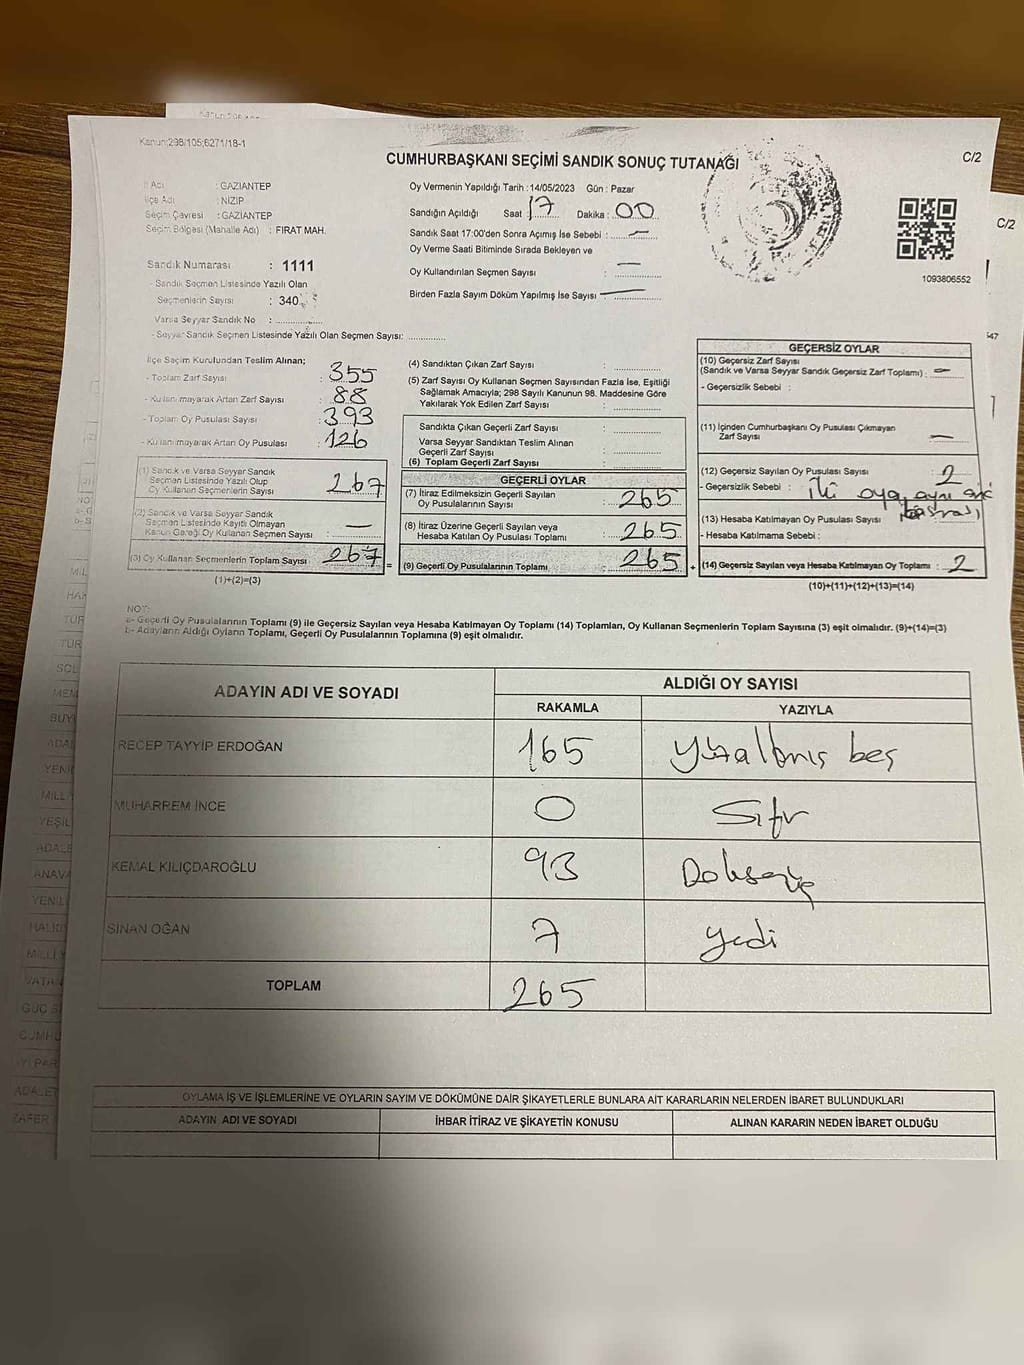 Kanun:298/105;6271/18-1
CUMHURBAŞKANI SEÇİMİ SANDIK SONUÇ TUTANAĞI
C/2
İl Adı : GAZİANTEP
İlçe Adı : NİZİP
Seçim Çevresi : GAZİANTEP
Seçim Bölgesi (Mahalle Adı) : FIRAT MAH.
Sandık Numarası : 1111
- Sandık Seçmen Listesinde Yazılı Olan
Seçmenlerin Sayısı : 340
Varsa Seyyar Sandık No :
- Seyyar Sandık Seçmen Listesinde Yazılı Olan Seçmen Sayısı:
Oy Vermenin Yapıldığı Tarih : 14/05/2023 Gün : Pazar
Sandığın Açıldığı Saat : 17 Dakika : 00
Sandık Saat 17:00'den Sonra Açımış İse Sebebi : —
Oy Verme Saati Bitiminde Sırada Bekleyen ve
Oy Kullandırılan Seçmen Sayısı : —
Birden Fazla Sayım Döküm Yapılmış İse Sayısı : —
1093806552
C/2
İlçe Seçim Kurulundan Teslim Alınan;
- Toplam Zarf Sayısı : 355
- Kullanılmayarak Artan Zarf Sayısı : 88
- Toplam Oy Pusulası Sayısı : 393
- Kullanılmayarak Artan Oy Pusulası : 126
(1) Sandık ve Varsa Seyyar Sandık
Seçmen Listesinde Yazılı Olup
Oy Kullanan Seçmenlerin Sayısı : 267
(2) Sandık ve Varsa Seyyar Sandık
Seçmen Listesinde Kayıtlı Olmayan
Kanun Gereği Oy Kullanan Seçmen Sayısı : —
(3) Oy Kullanan Seçmenlerin Toplam Sayısı : 267
(1)+(2)=(3)
(4) Sandıktan Çıkan Zarf Sayısı :
(5) Zarf Sayısı Oy Kullanan Seçmen Sayısından Fazla İse, Eşitliği
Sağlamak Amacıyla; 298 Sayılı Kanunun 98. Maddesine Göre
Yakılarak Yok Edilen Zarf Sayısı :
Sandıkta Çıkan Geçerli Zarf Sayısı :
Varsa Seyyar Sandıktan Teslim Alınan
Geçerli Zarf Sayısı :
(6) Toplam Geçerli Zarf Sayısı :
GEÇERLİ OYLAR
(7) İtiraz Edilmeksizin Geçerli Sayılan
Oy Pusulalarının Sayısı : 265
(8) İtiraz Üzerine Geçerli Sayılan veya
Hesaba Katılan Oy Pusulası Toplamı : 265
= (9) Geçerli Oy Pusulalarının Toplamı : 265
GEÇERSİZ OYLAR
(10) Geçersiz Zarf Sayısı
(Sandık ve Varsa Seyyar Sandık Geçersiz Zarf Toplamı) : —
- Geçersizlik Sebebi :
(11) İçinden Cumhurbaşkanı Oy Pusulası Çıkmayan
Zarf Sayısı —
(12) Geçersiz Sayılan Oy Pusulası Sayısı 2
- Geçersizlik Sebebi : İki oya, aynı
(13) Hesaba Katılmayan Oy Pusulası Sayısı :
- Hesaba Katılmama Sebebi :
+ (14) Geçersiz Sayılan veya Hesaba Katılmayan Oy Toplamı : 2
(10)+(11)+(12)+(13)=(14)
NOT:
a- Geçerli Oy Pusulalarının Toplamı (9) ile Geçersiz Sayılan veya Hesaba Katılmayan Oy Toplamı (14) Toplamları, Oy Kullanan Seçmenlerin Toplam Sayısına (3) eşit olmalıdır. (9)+(14)=(3)
b- Adayların Aldığı Oyların Toplamı, Geçerli Oy Pusulalarının Toplamına (9) eşit olmalıdır.
ADAYIN ADI VE SOYADI ALDIĞI OY SAYISI
RAKAMLA YAZIYLA
RECEP TAYYİP ERDOĞAN 165 Yüzaltmış beş
MUHARREM İNCE 0 Sıfır
KEMAL KILIÇDAROĞLU 93 Doksanüç
SİNAN OĞAN 7 yedi
TOPLAM 265
OYLAMA İŞ VE İŞLEMLERİNE VE OYLARIN SAYIM VE DÖKÜMÜNE DAİR ŞİKAYETLERLE BUNLARA AİT KARARLARIN NELERDEN İBARET BULUNDUKLARI
ADAYIN ADI VE SOYADI İHBAR İTİRAZ VE ŞİKAYETİN KONUSU ALINAN KARARIN NEDEN İBARET OLDUĞU